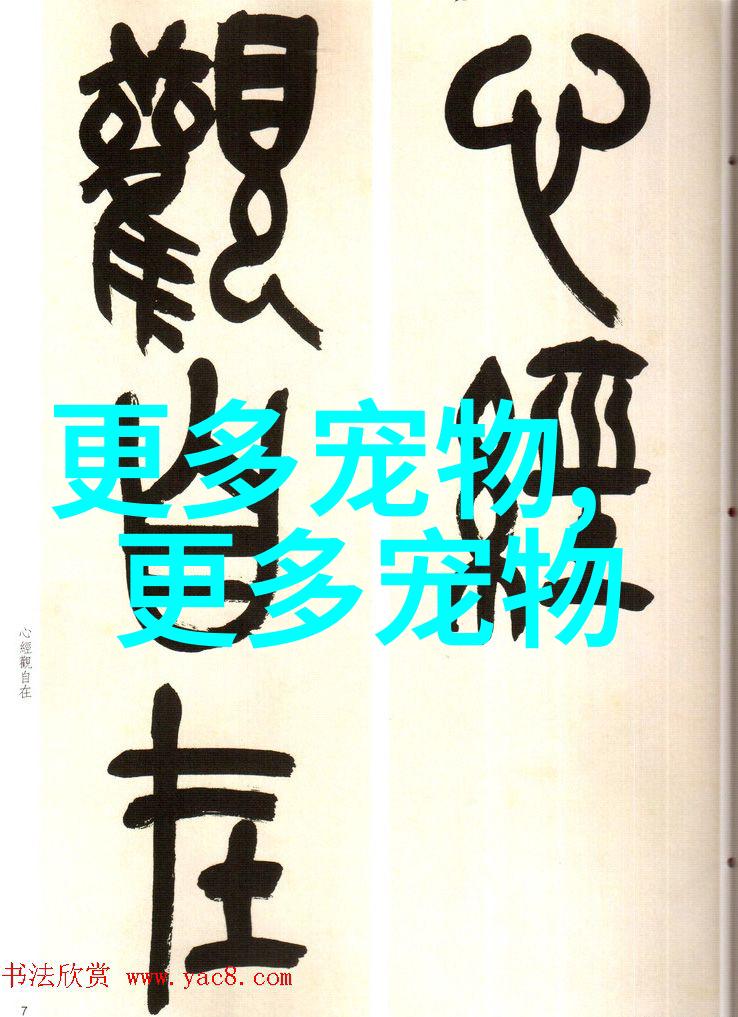 心經
觀自在
更多宠物,
更多宠物
心經觀自在
书法欣赏 www.yac8.com
7